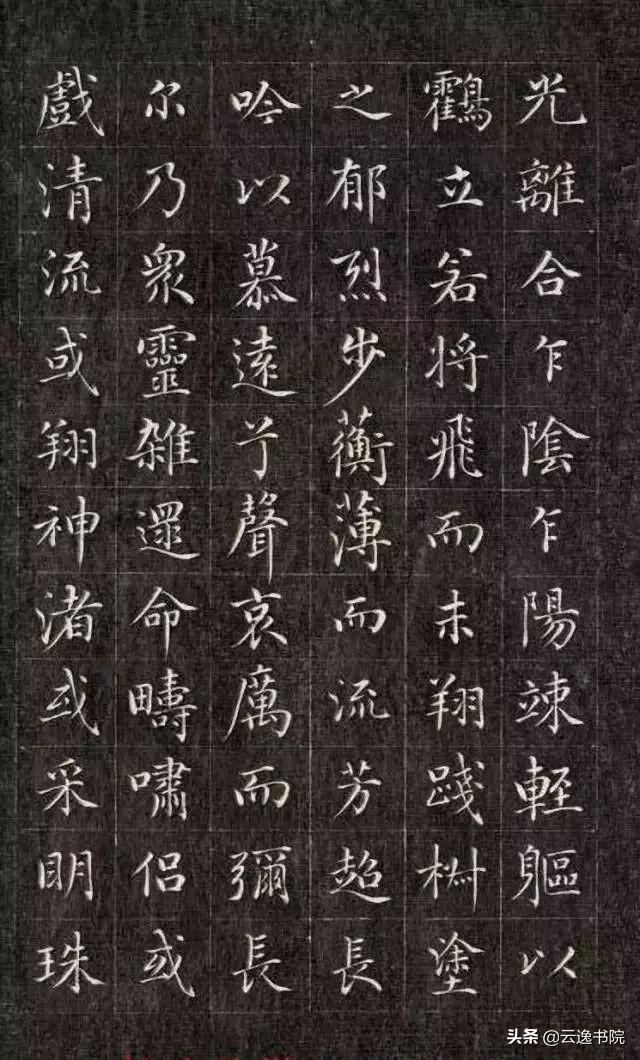 光離合乍陰乍陽竦軽軀以
鶴立若将飛而未翔踐椒塗
之郁烈步蘅薄而流芳超長
吟以慕遠兮聲哀厲而彌長
尔乃衆靈雑遝命疇嘯侣或
戲清流或翔神渚或采明珠
头条 @云逸书院